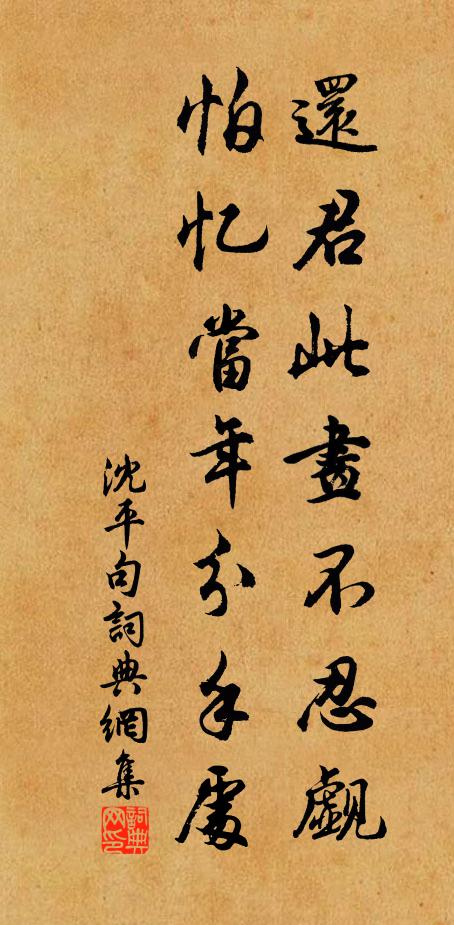 還君此畫不忍觑
怕忆當年分手處
沈平句詞典網集
詞典
网印